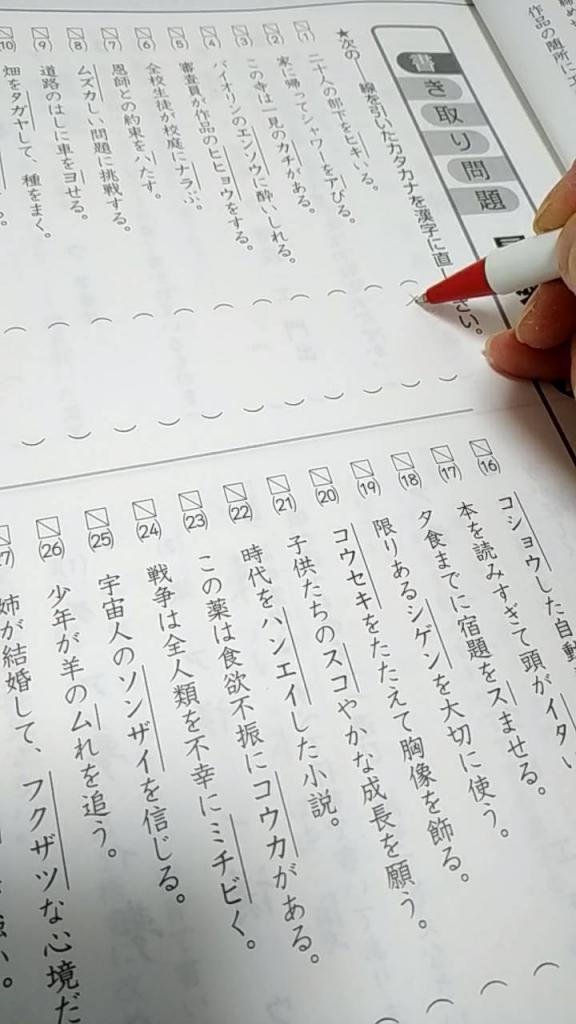 書き取り問題
★次の――線を引いたカタカナを漢字に直し
さい。
(1) 二十人の部下をヒキいる。
(2) 家に帰ってシャワーをアびる。
(3) この寺は一見のカチがある。
(4) バイオリンのエンソウに酔いしれる。
(5) 審査員が作品のヒヒョウをする。
(6) 全校生徒が校庭にナラぶ。
(7) 恩師との約束をハたす。
(8) ムズカしい問題に挑戦する。
(9) 道路のはしに車をヨせる。
(10) 畑をタガヤして、種をまく。
(16) コショウした自動
(17) 本を読みすぎて頭がイタい
(18) 夕食までに宿題をスませる。
(19) 限りあるシゲンを大切に使う。
(20) コウセキをたたえて胸像を飾る。
(21) 子供たちのスコやかな成長を願う。
(22) 時代をハンエイした小説。
(23) この薬は食欲不振にコウカがある。
(24) 戦争は全人類を不幸にミチビく。
(25) 宇宙人のソンザイを信じる。
(26) 少年が羊のムれを追う。
姉が結婚して、フクザツな心境だ
作品の随所にユ